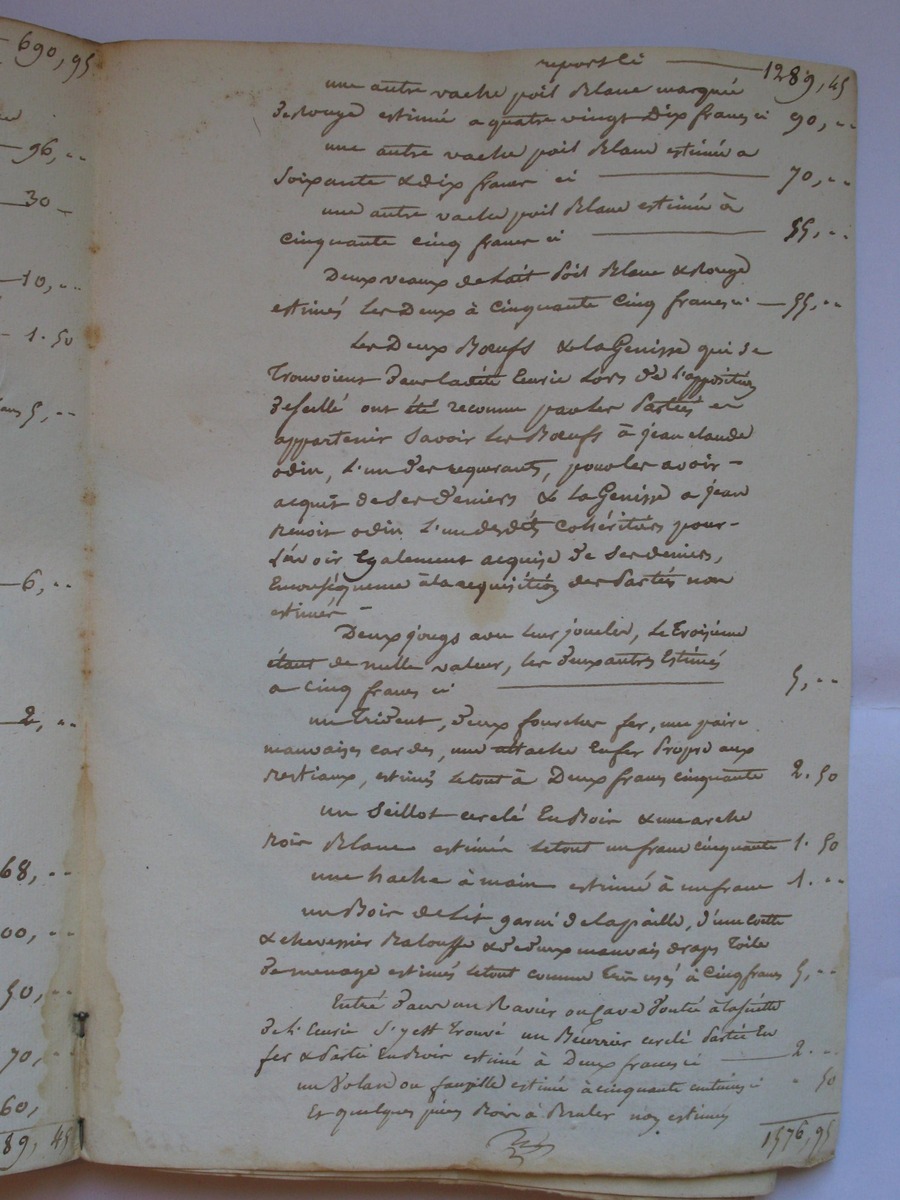 690,95
96, ..
30 _
10, ..
1. 50
5, ..
6, ..
2, ..
68, ..
00, ..
50, ..
70, ..
60,
89, 45
report ci 1289, 45
une autre vache poil Blanc marqué
de rouge estimé a quatre vingt Dix francs ci 90, ..
une autre vache poil Blanc estimée a
soixante & dix francs ci 70, ..
une autre vache poil Blanc estimée à
cinquante cinq francs ci 55, ..
Deux veaux de lait poil Blanc & rouge
estimés les Deux à cinquante cinq francs ci 55, ..
Les Deux Bœufs & la Genisse qui se
trouvoient dans ladite Ecurie lors de l'apposition
de scellé ont été reconnu par les parties en
appartenir savoir les Bœufs à jean claude
odin, l'un des requerants, pour les avoir
acquis de ses deniers & la Genisse a jean
Benoit odin l'un desdits cohéritiers pour
l'avoir Egalement acquise de ses deniers,
En conséquence à la requisition des parties non
estimés
Deux jougs avec leur joucles, le troisieme
étant de nulle valeur, les deux autres Estimés
a cinq francs ci 5, ..
un Trident, deux fourches fer, une paire
mauvaises cardes, une attache En fer propre aux
Bestiaux, estimés le tout à Deux francs cinquante 2. 50
un seillot cerclé En Bois & une arche
Bois Blanc estimée le tout un franc cinquante 1. 50
une hache à main estimé à un franc 1. ..
un Bois de Lit garni de la paille, d'une coette
& chevessier Balouffe & de deux mauvais draps Toile
de menage estimés le tout comme très usés à cinq francs 5, ..
Entré dans un ou Cave
de l'Ecurie s'y est trouvé un Beurrier cerclé partie En
fer & partie En Bois estimé à Deux francs ci 2. ..
un Volan ou faucille estimée à cinquante centimes ci . 50
Et quelques pieces Bois à Bruler non estimés
1576, 95